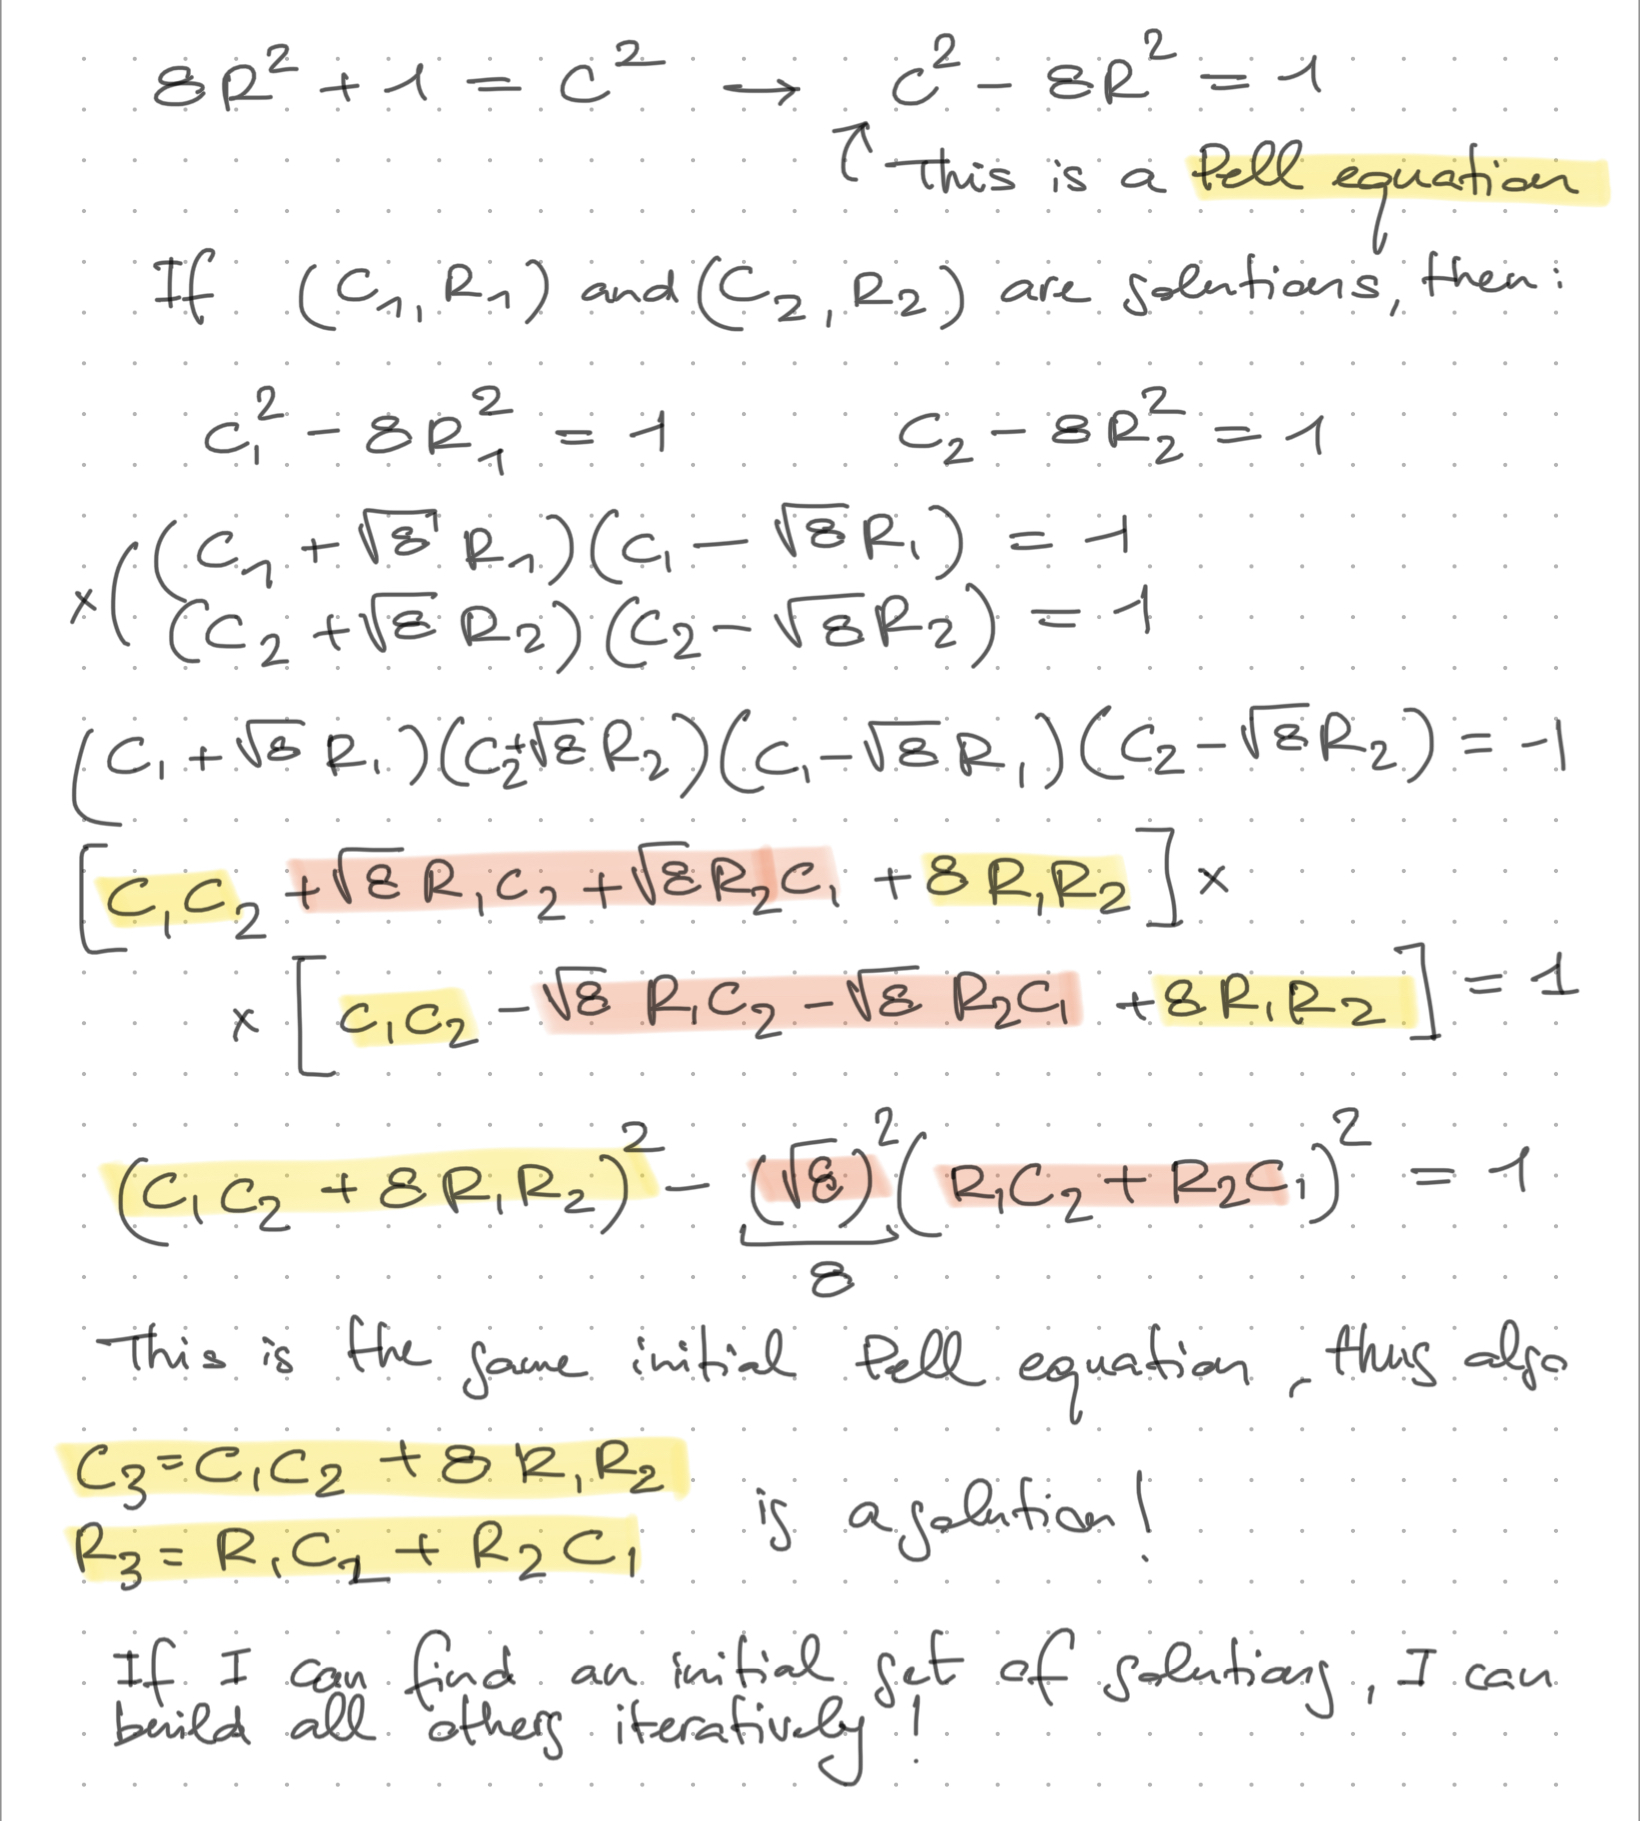 8R² + 1 = C² → C² - 8R² = 1
↑ This is a Pell equation
If (C₁, R₁) and (C₂, R₂) are solutions, then:
C₁² - 8R₁² = 1 C₂ - 8R₂² = 1
(C₁ + √8 R₁)(C₁ - √8 R₁) = 1
×( (C₂ + √8 R₂)(C₂ - √8 R₂) = 1
(C₁ + √8 R₁)(C₂ + √8 R₂)(C₁ - √8 R₁)(C₂ - √8 R₂) = -1
[C₁C₂ + √8 R₁C₂ + √8 R₂C₁ + 8 R₁R₂] ×
× [C₁C₂ - √8 R₁C₂ - √8 R₂C₁ + 8 R₁R₂] = 1
(C₁C₂ + 8 R₁R₂)² - (√8)² (R₁C₂ + R₂C₁)² = 1
8
This is the same initial Pell equation, thus also
C₃ = C₁C₂ + 8 R₁R₂
is a solution!
R₃ = R₁C₂ + R₂C₁
If I can find an initial set of solutions, I can
build all others iteratively!